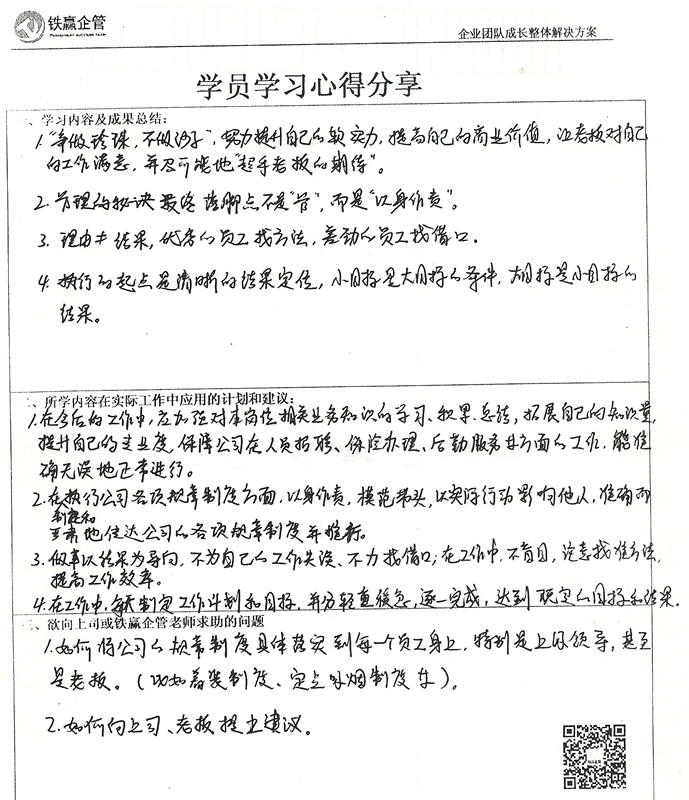 铁赢企管
企业团队成长整体解决方案
学员学习心得分享
一、学习内容及成果总结：
1. "争做珍珠，不做沙子"，努力提升自己的软实力，提高自己的商业价值，让老板对自己
的工作满意，并尽可能地"超乎老板的期待"。
2. 管理的秘诀最终落脚点不是"管"，而是"以身作责"。
3. 理由≠结果，优秀的员工找方法，差劲的员工找借口。
4. 执行的起点是清晰的结果定位，小目标是大目标的条件，大目标是小目标的
结果。
二、所学内容在实际工作中应用的计划和建议：
1. 在今后的工作中，应加强对本岗位相关业务知识的学习、积累、总结，拓展自己的知识量，
提升自己的专业度，保障公司在人员招聘、保险办理、后勤服务等方面的工作，能准
确无误地正常进行。
2. 在执行公司各项规章制度方面，以身作责，模范带头，以实际行动影响他人，准确而
制度和
地传达公司的各项规章制度并推行。
3. 做事以结果为导向，不为自己的工作失误、不力找借口；在工作中，不盲目，注意找准方法，
提高工作效率。
4. 在工作中，每天制定工作计划和目标，并分轻重缓急，逐一完成，达到既定的目标和结果。
三、欲向上司或铁赢企管老师求助的问题
1. 如何将公司的规章制度具体落实到每一个员工身上，特别是上层领导，甚至
是老板。（比如着装制度、定点吸烟制度等）。
2. 如何向上司、老板提出建议。